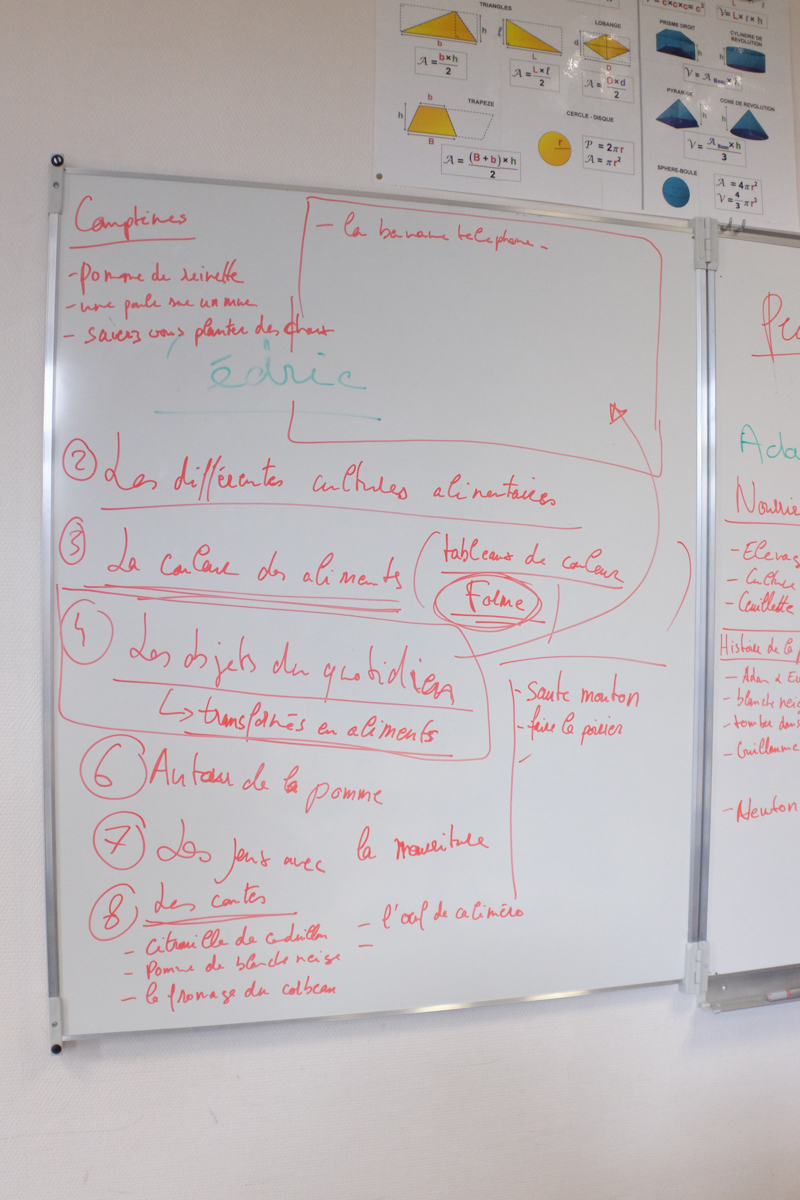 TRIANGLES
LOSANGE
h
b
L
d
D
A = b×h / 2
A = L×ℓ / 2
A = D×d / 2
TRAPEZE
b
h
B
A = (B+b)×h / 2
CERCLE - DISQUE
r
P = 2πr
A = πr²
V = L×ℓ×h
PRISME DROIT
CYLINDRE DE REVOLUTION
h
h
V = A Base × h
PYRAMIDE
CONE DE REVOLUTION
h
h
V = A Base × h / 3
SPHERE-BOULE
A = 4πr²
V = 4/3 πr³
Comptines
- pomme de reinette
- une poule sur un mur
- savez vous planter des choux
- la banane telephone -
édric
② Les différentes cultures alimentaires
③ La couleur des aliments (tableaux de couleur)
Forme
④ Les objets du quotidien
↳ transformés en aliments
- saute mouton
- faire le poirier
-
⑥ Autour de la pomme
⑦ Les jeux avec la nourriture
⑧ Les contes
- citrouille de cendrillon
- Pomme de blanche neige
- le fromage du corbeau
- l'œuf de caliméro
-
Ada
- Elevag
- Culture
- Cueillette
Histoire de la p
- Adam & Ev
- blanche neig
- tombe dans
- Guillaume
- Newton